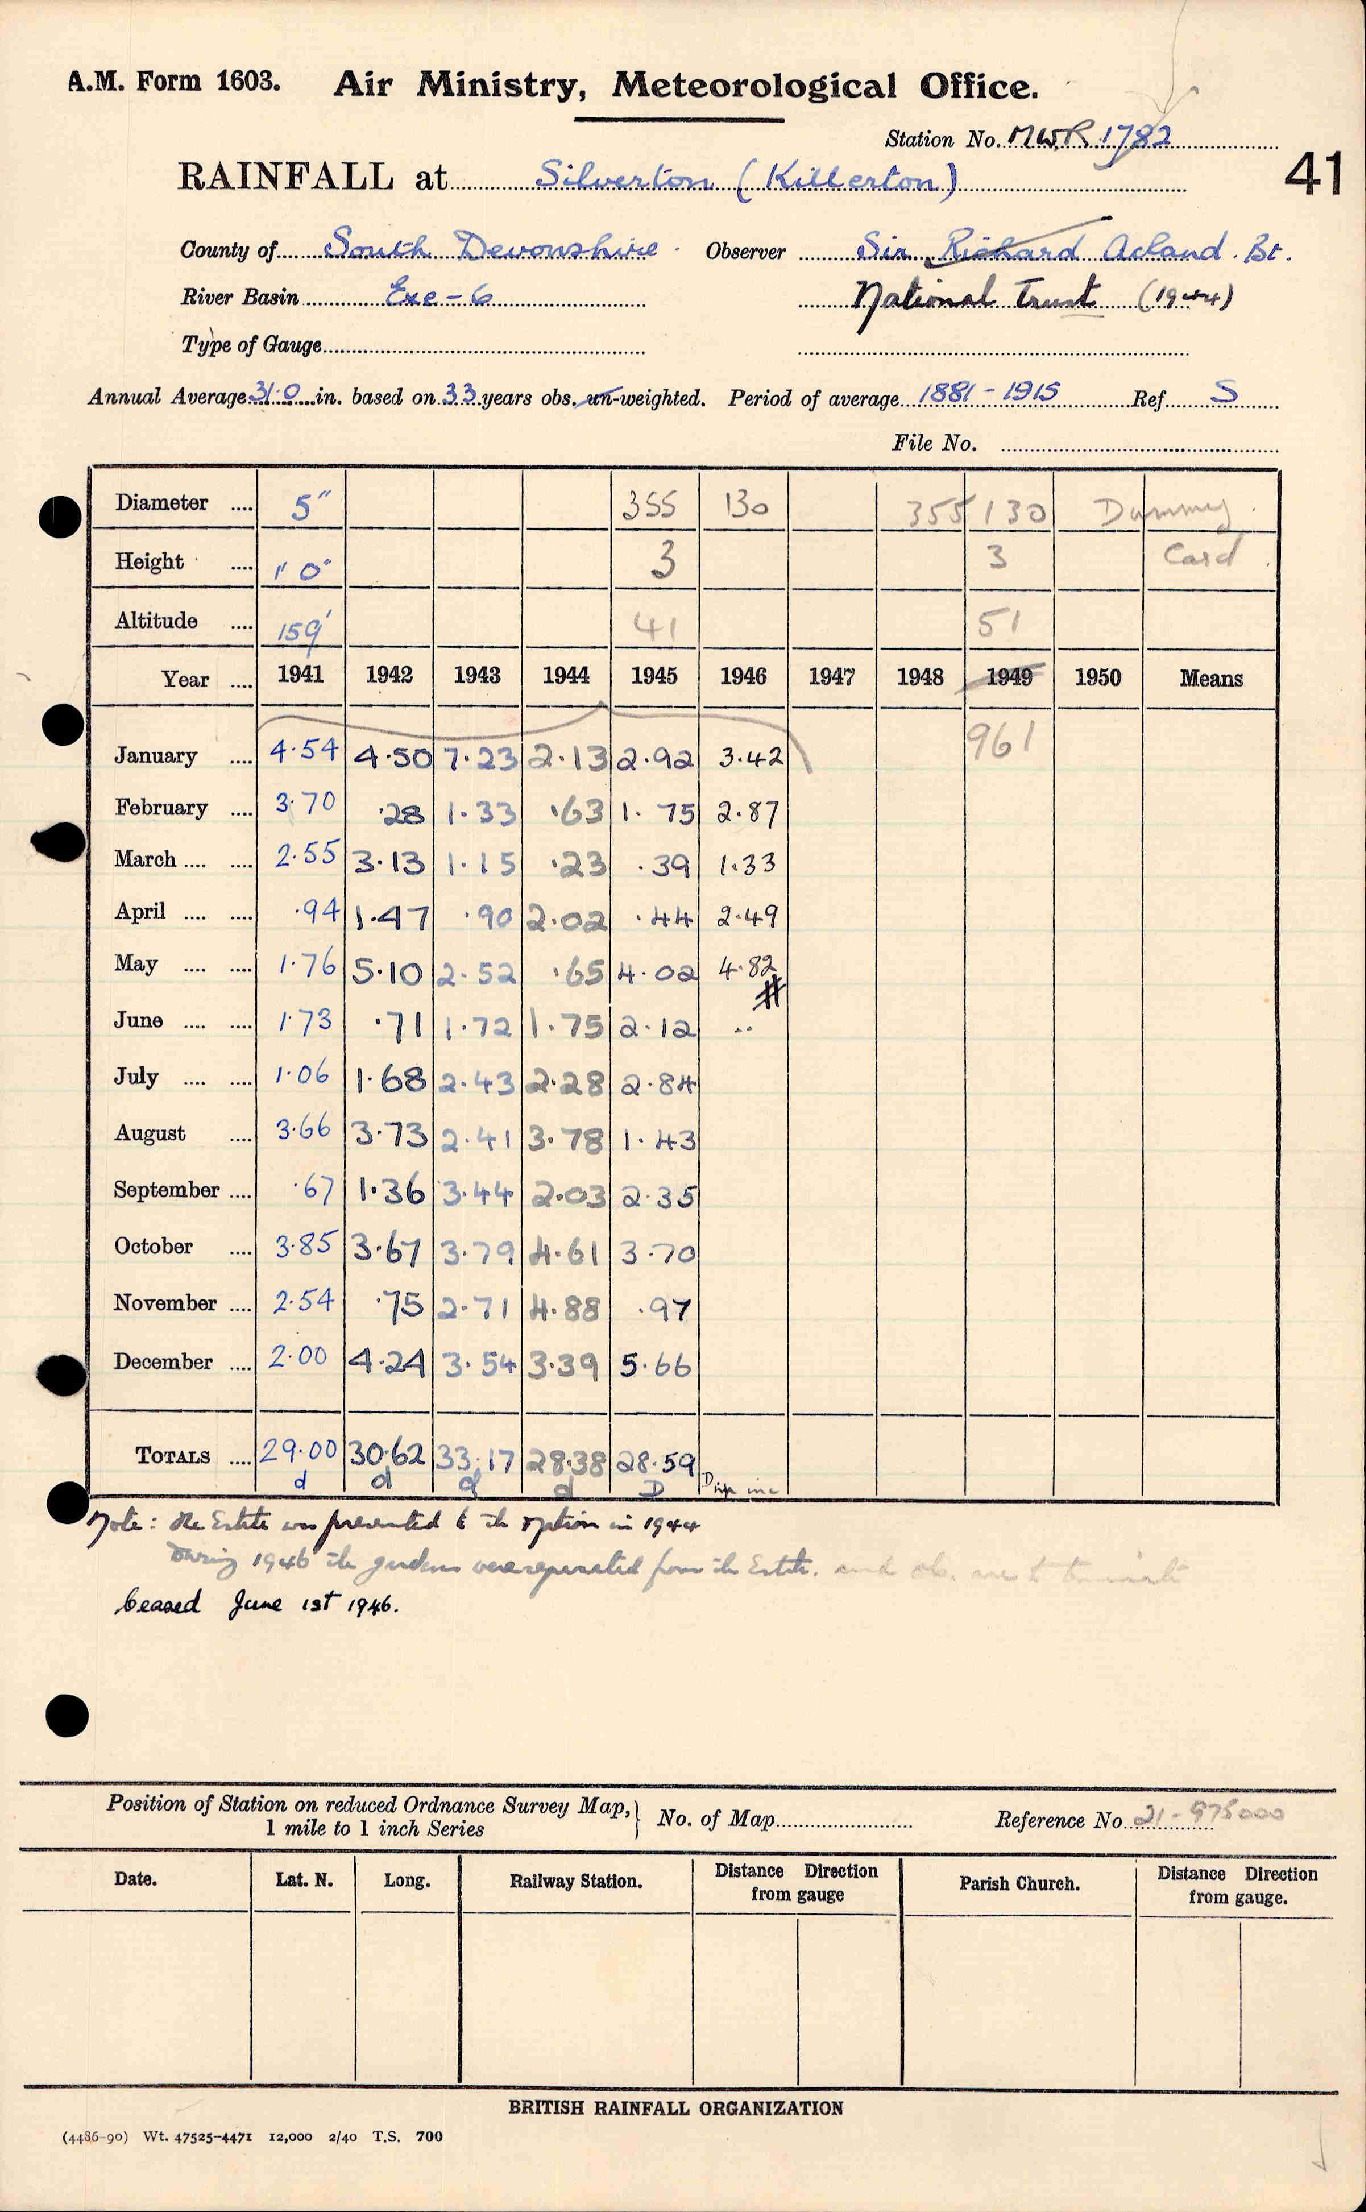 A.M. Form 1603. Air Ministry, Meteorological Office.
Station No. MWR 1782
RAINFALL at Silverton (Killerton)
41
County of South Devonshire Observer Sir Richard Acland. Bt.
River Basin Exe-6 National Trust (1944)
Type of Gauge
Annual Average 31.0 in. based on 33 years obs. un-weighted. Period of average 1881-1915 Ref S
File No.
Diameter .... 5" 355 130 355 130 Dummy
Height .... 1' 0" 3 3 Card
Altitude .... 159' 41 51
Year .... 1941 1942 1943 1944 1945 1946 1947 1948 1949 1950 Means
961
January .... 4.54 4.50 7.23 2.13 2.92 3.42
February .... 3.70 .28 1.33 .63 1.75 2.87
March .... .... 2.55 3.13 1.15 .23 .39 1.33
April .... .... .94 1.47 .90 2.02 .44 2.49
May .... .... 1.76 5.10 2.52 .65 4.02 4.82
#
June .... .... 1.73 .71 1.72 1.75 2.12 ..
July .... .... 1.06 1.68 2.43 2.28 2.84
August .... 3.66 3.73 2.41 3.78 1.43
September .... .67 1.36 3.44 2.03 2.35
October .... 3.85 3.67 3.79 4.61 3.70
November .... 2.54 .75 2.71 4.88 .97
December .... 2.00 4.24 3.54 3.39 5.66
TOTALS .... 29.00 30.62 33.17 28.38 28.59
d d d d D
Note: the Estate was presented to the Nation in 1944
During 1946 the gardens were separated from the Estate. and obs. are to terminate
Ceased June 1st 1946.
Position of Station on reduced Ordnance Survey Map, } No. of Map Reference No 21-975000
1 mile to 1 inch Series
Date. Lat. N. Long. Railway Station. Distance Direction from gauge Parish Church. Distance Direction from gauge.
BRITISH RAINFALL ORGANIZATION
(4486-90) Wt. 47525-4471 12,000 2/40 T.S. 700